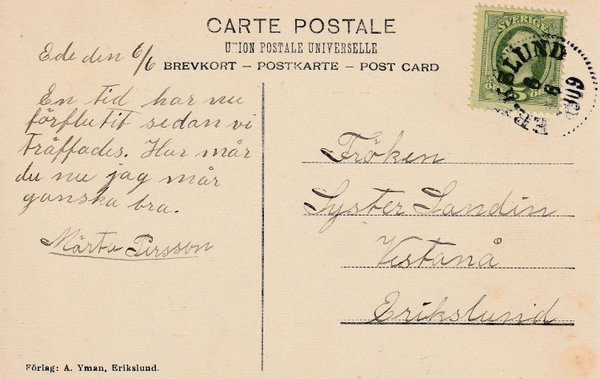 CARTE POSTALE
UNION POSTALE UNIVERSELLE
BREVKORT – POSTKARTE – POST CARD
SVERIGE
ERIKSLUND
8 6
1909
Ede den 6/6
En tid har nu
förflutit sedan vi
träffades. Hur mår
du nu jag mår
ganska bra.
Märta Persson
Fröken
Syster Sandin
Vestanå
Erikslund
Förlag: A. Yman, Erikslund.